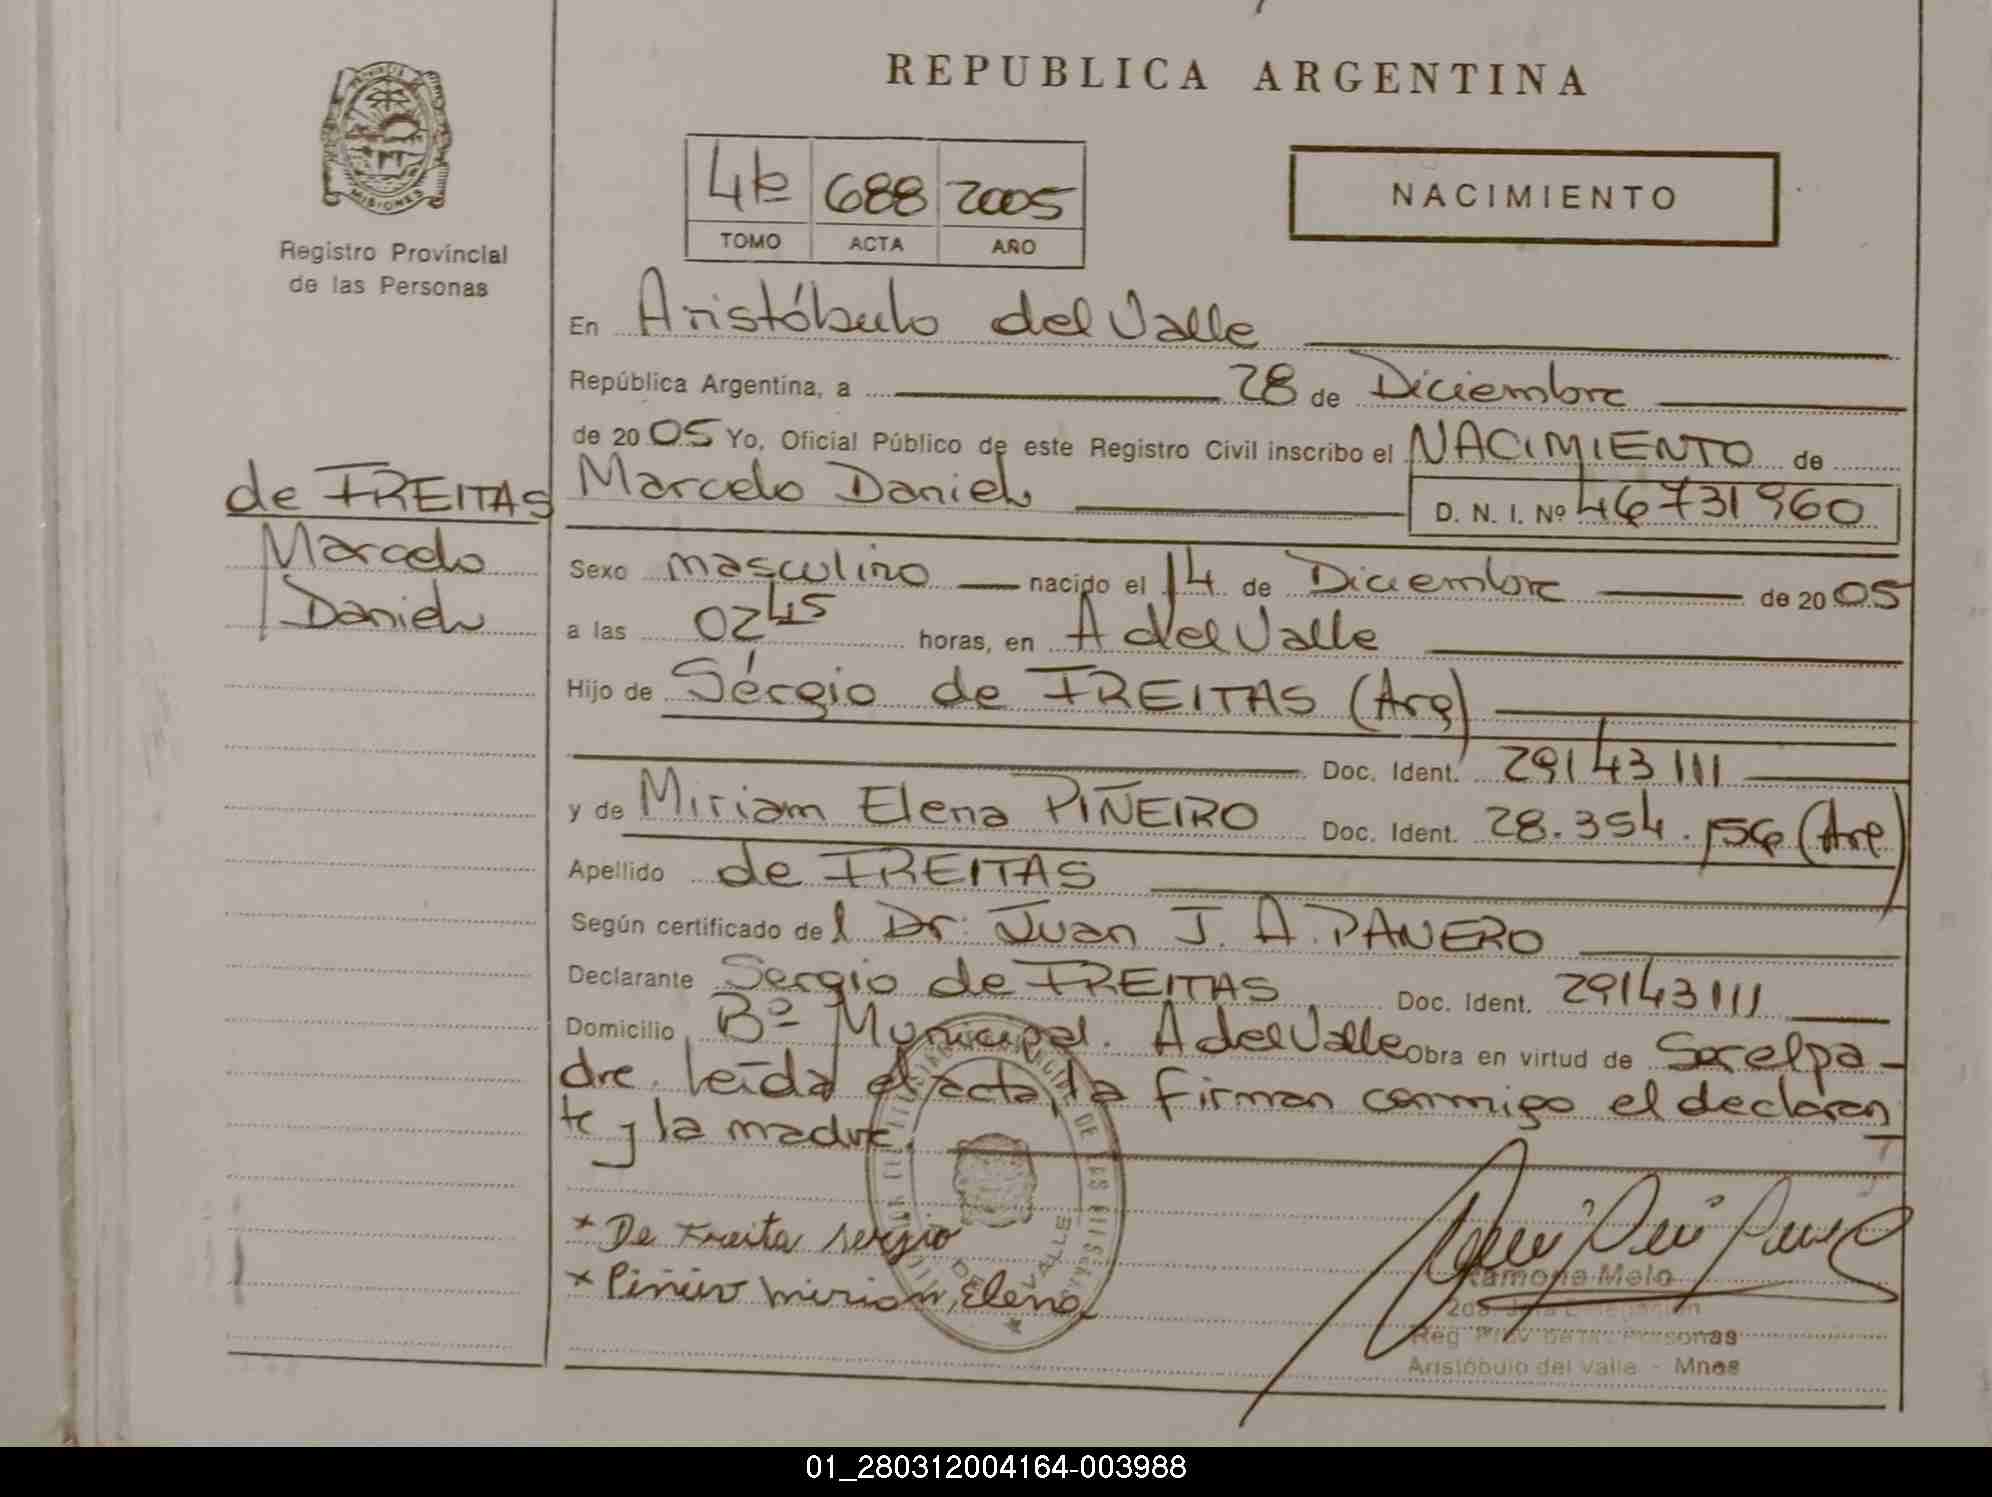 REPUBLICA ARGENTINA
MISIONES
Registro Provincial
de las Personas
688 2005
TOMO ACTA AÑO
NACIMIENTO
En Aristóbulo del Valle
República Argentina, a 28 de Diciembre
de 2005 Yo, Oficial Público de este Registro Civil inscribo el NACIMIENTO de
de FREITAS
Marcelo
Daniel
Marcelo Daniel
D. N. I. Nº 46731960
Sexo masculino nacido el 14 de Diciembre de 2005
a las 02 45 horas, en A del Valle
Hijo de Sérgio de FREITAS (Arg)
Doc. Ident. 29143111
y de Miriam Elena PIÑEIRO Doc. Ident. 28.354.156 (Arg)
Apellido de FREITAS
Según certificado del Dr. Juan J. A. PANERO
Declarante Sergio de FREITAS Doc. Ident. 29143111
Domicilio Bº Municipal. A del Valle Obra en virtud de Ser el pa-
dre. leída el acta, la firman conmigo el declaran
te y la madre.
* De Freita sergio
* Piñeiro mirian, Elena
DEL VALLE
Ramona Melo
Reg. Prov. de las Personas
Aristóbulo del Valle - Mnes
01_280312004164-003988